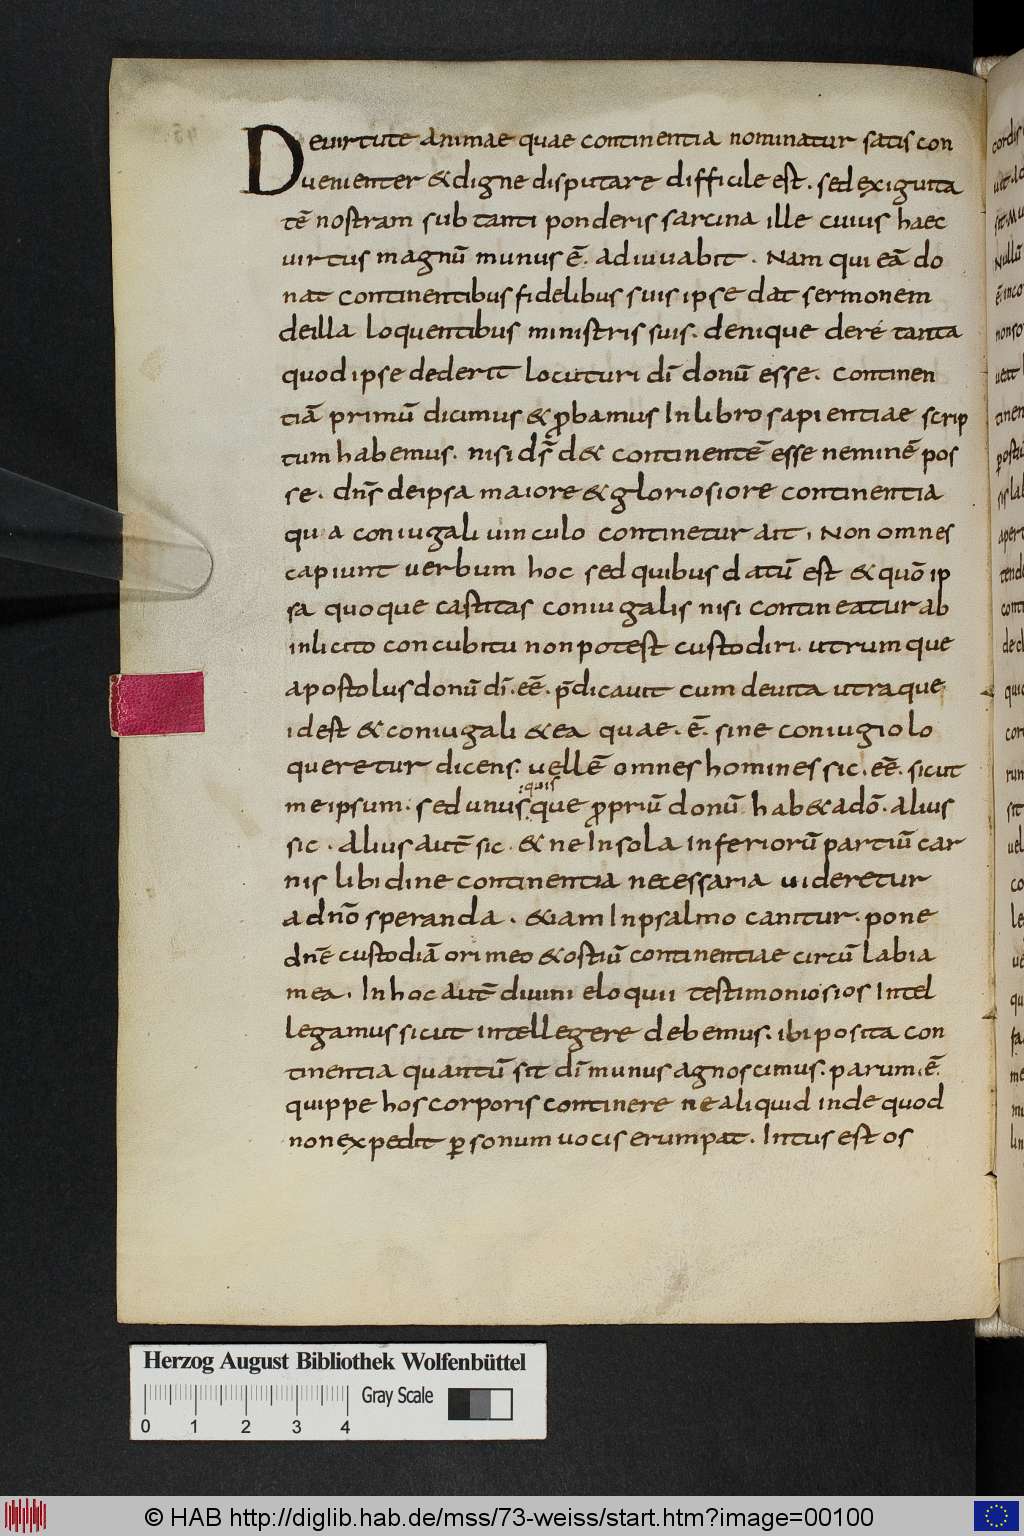 Deuirtute animae quae continentia nominatur satis con
uenienter & digne disputare difficile est. sed exiguita
tē nostram sub tanti ponderis sarcina ille cuius haec
uirtus magnū munus ē. adiuuabit. Nam qui eā do
nat continentibus fidelibus suis ipse dat sermonem
deilla loquentibus ministris suis. denique deré tanta
quod ipse dederit locuturi dī donū esse. continen
tiā primū dicimus & ꝓbamus In libro sapientiae scrip
tum habemus. nisi ds̄ d& continentē esse neminē pos
se. dns̄ deipsa maiore & gloriosiore continentia
qua coniugali uinculo continetur ait. Non omnes
capiunt uerbum hoc sed quibus datū est & quō ip
sa quoque castitas coniugalis nisi contineatur ab
inlicito concubitu non potest custodiri. utrum que
apostolus donū dī. eē. p̄dicauit cum deuita utraque
id est & coniugali & ea quae. ē. sine coniugio lo
queretur dicens. uellē omnes homines sic. eē. sicut
me ipsum. sed unus que ꝓpriū donū hab& adō. alius
:quis
sic. alius autē sic. & ne In sola inferiorū partiū car
nis libidine continentia necessaria uideretur
adnō speranda. &iam In psalmo canitur. pone
dnē custodiā ori meo & ostiū continentiae circū labia
mea. In hoc autē diuini eloquii testimonio si os Intel
legamus sicut intellegere debemus. ibi posita con
tinentia quantū sit dī munus agnoscimus. parum. ē.
quippe hos corporis continere ne aliquid inde quod
non expedit ꝑ sonum uocis erumpat. Intus est os
Herzog August Bibliothek Wolfenbüttel
Gray Scale
0 1 2 3 4
© HAB http://diglib.hab.de/mss/73-weiss/start.htm?image=00100